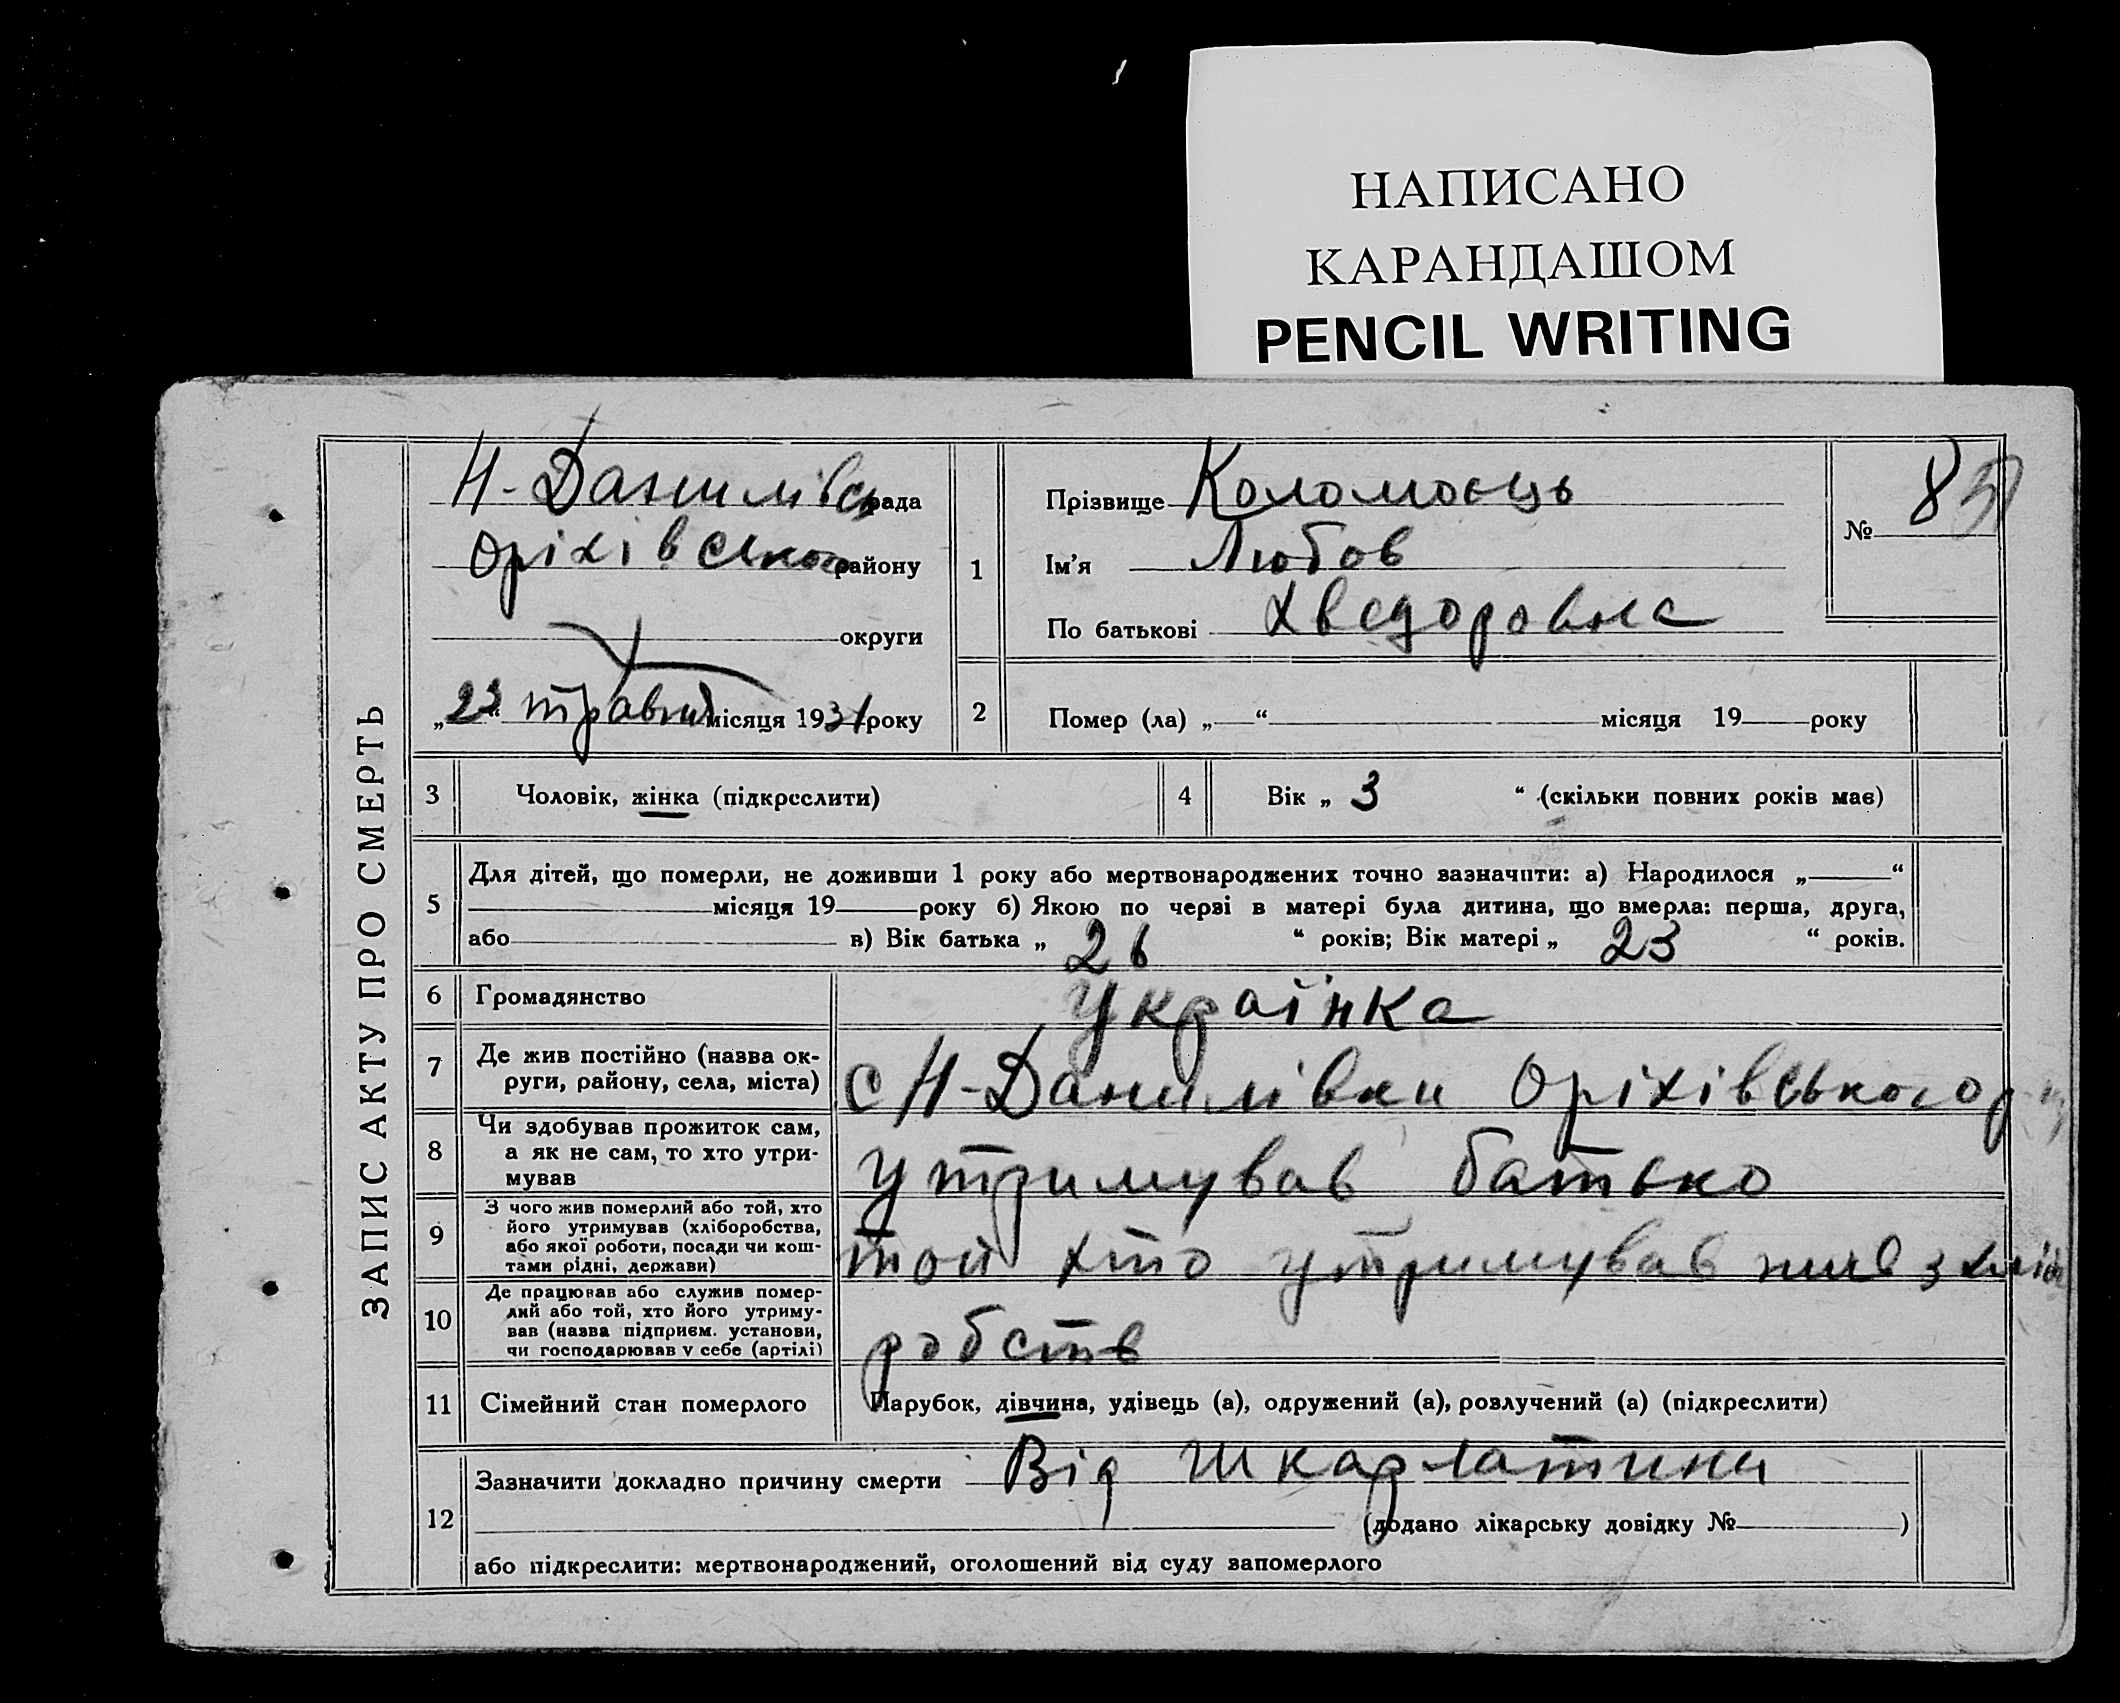 НАПИСАНО
КАРАНДАШОМ
PENCIL WRITING
ЗАПИС АКТУ ПРО СМЕРТЬ
Н-Данилівськ рада
Оріхівського району
округи
„22“ травня місяця 1931 року
1
Прізвище Коломоєць
Ім'я Любов
По батькові Хведоровна
№ 8
2 Помер (ла) „ “ місяця 19 року
3 Чоловік, жінка (підкреслити)
4 Вік „ 3 “ (скільки повних років має)
5 Для дітей, що померли, не доживши 1 року або мертвонароджених точно зазначити: а) Народилося „ “
місяця 19 року б) Якою по черзі в матері була дитина, що вмерла: перша, друга,
або в) Вік батька „ 26 “ років; Вік матері „ 23 “ років.
6 Громадянство Українка
7 Де жив постійно (назва ок-
руги, району, села, міста) с Н-Данилівки Оріхівського р
8 Чи здобував прожиток сам,
а як не сам, то хто утри-
мував утримував батько
9 З чого жив померлий або той, хто
його утримував (хліборобства,
або якої роботи, посади чи кош-
тами рідні, держави) той хто утримував жив з хліб
10 Де працював або служив помер-
лий або той, хто його утриму-
вав (назва підприєм. установи,
чи господарював у себе (артілі) робств
11 Сімейний стан померлого Парубок, дівчина, удівець (а), одружений (а), розлучений (а) (підкреслити)
12 Зазначити докладно причину смерти Від шкарлатини
(додано лікарську довідку № )
або підкреслити: мертвонароджений, оголошений від суду запомерлого